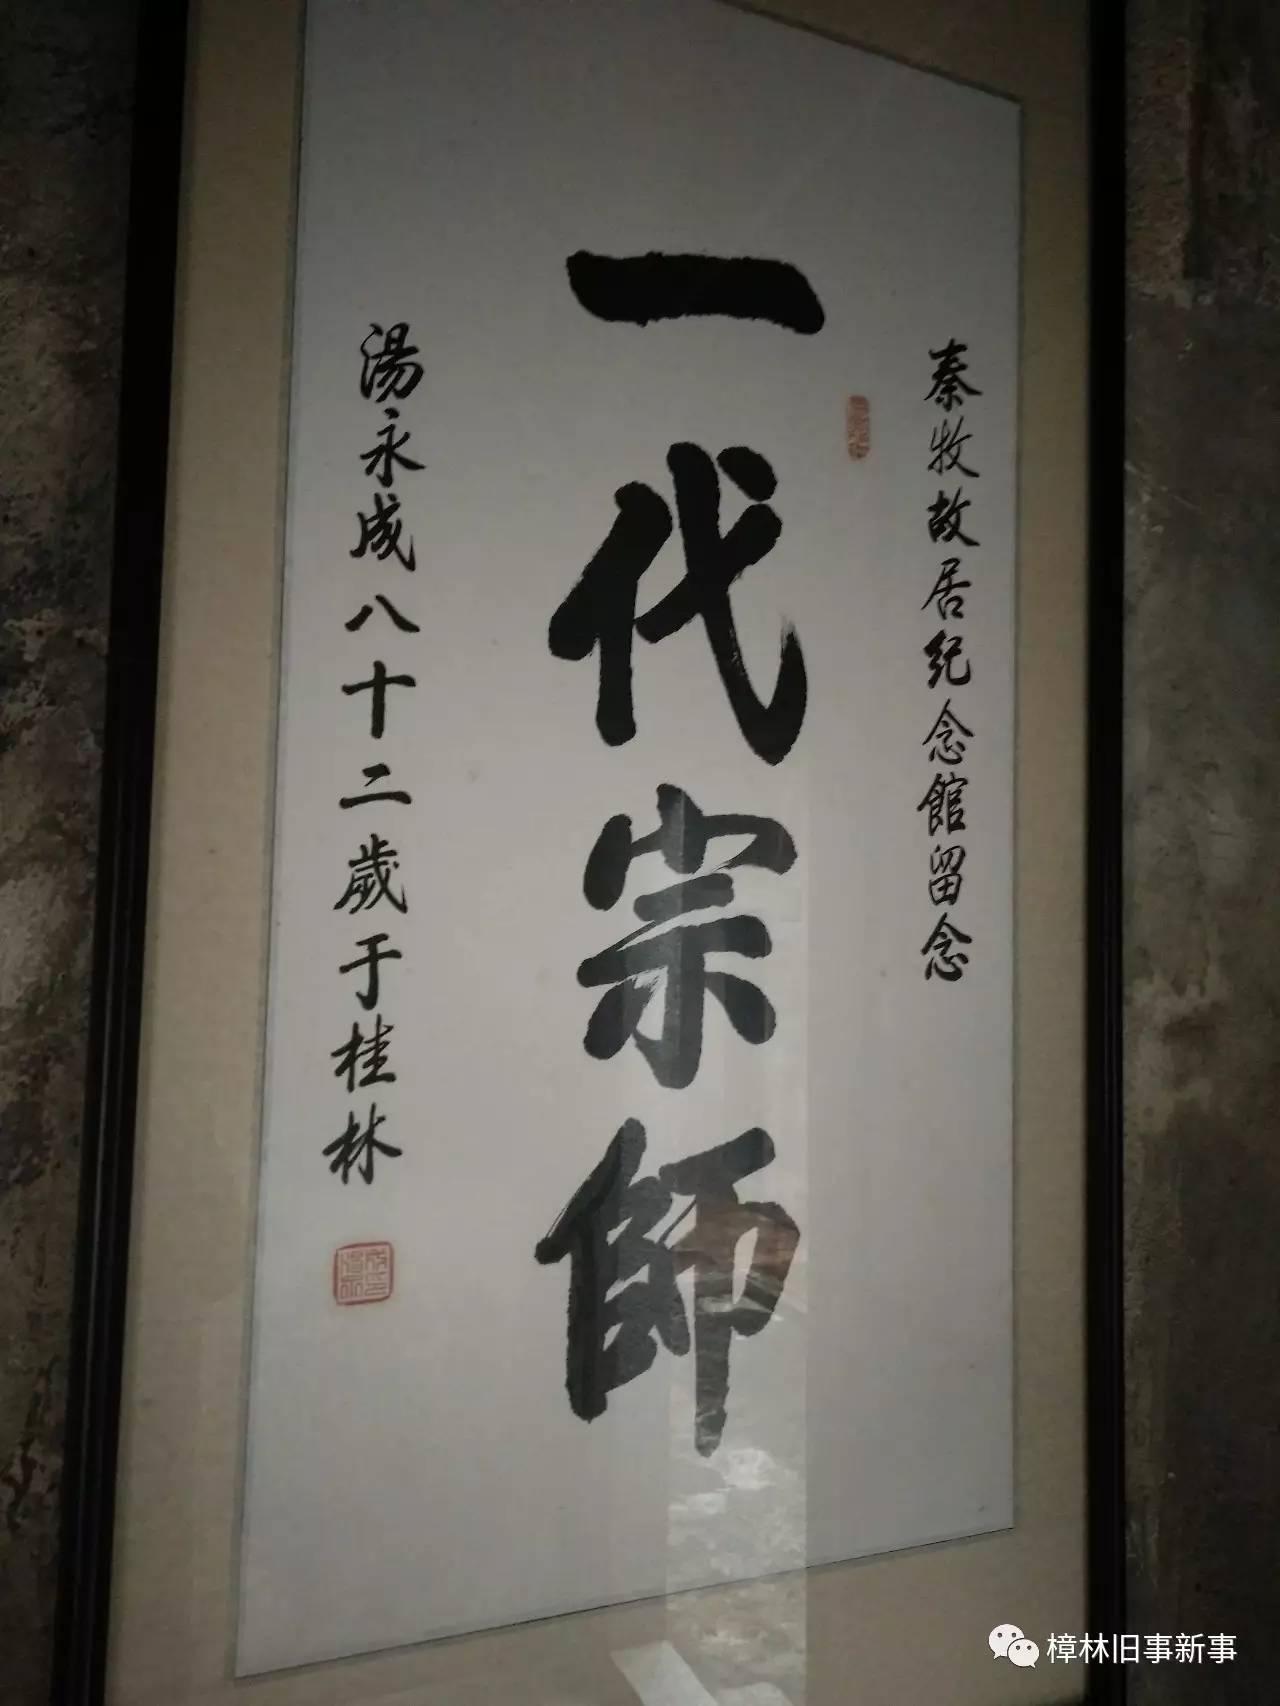 秦牧故居纪念館留念
一代宗師
湯永成八十二歲于桂林
樟林旧事新事